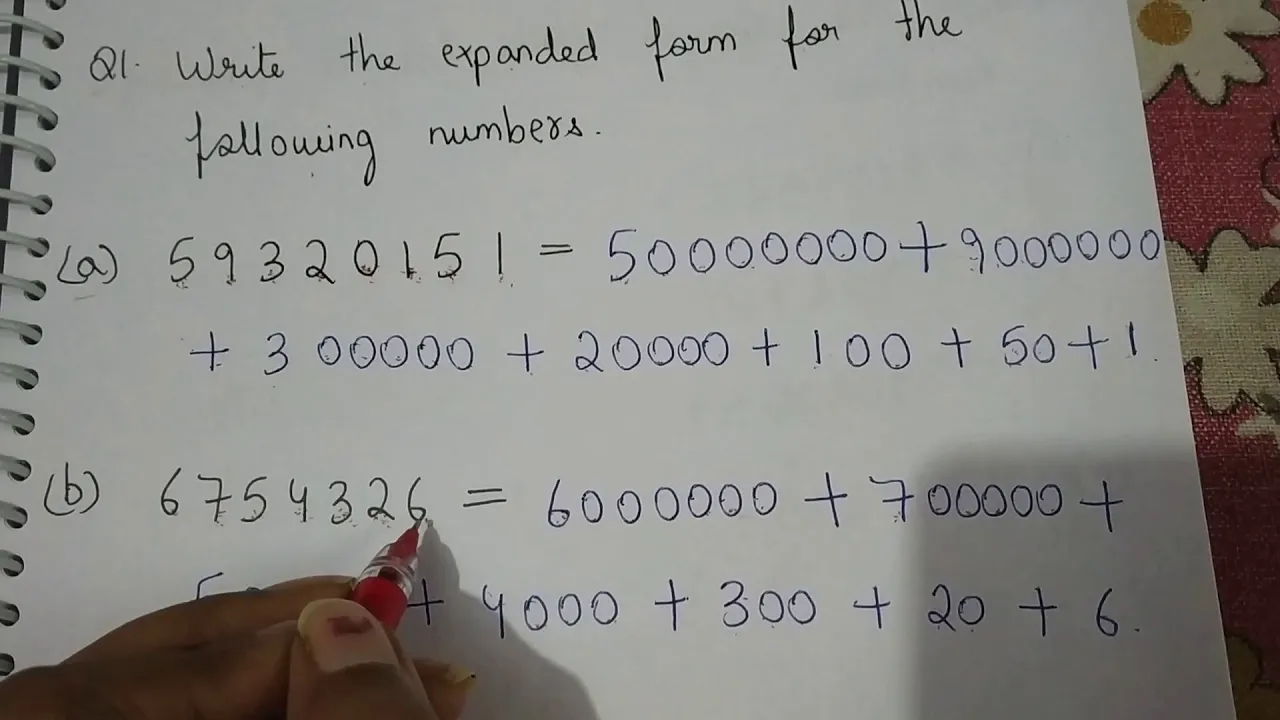 Q1. Write the expanded form for the
following numbers.
(a) 59320151 = 50000000 + 9000000
+ 300000 + 20000 + 100 + 50 + 1.
(b) 6754326 = 6000000 + 700000 +
+ 4000 + 300 + 20 + 6.